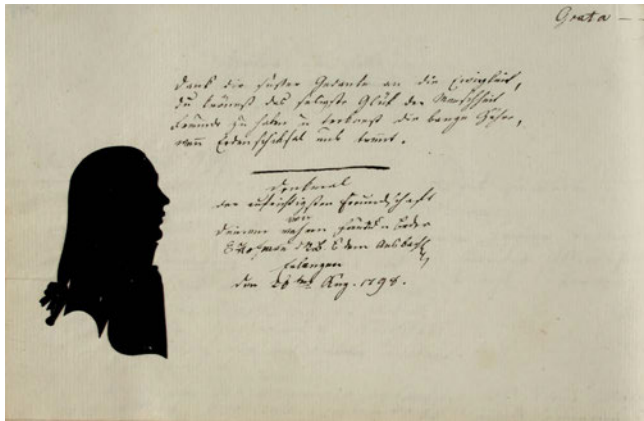 Grata —
Dank dir süßer Gedanke an die Ewigkeit,
du krönest das seligste Glük der Menschheit
Freunde zu haben u. troknest die bange Zähre,
wenn Erdenschiksal uns trennt.
Denkmal
der aufrichtigsten Freundschaft
von
deinem wahren
Erlangen
den 26 Aug. 1798.